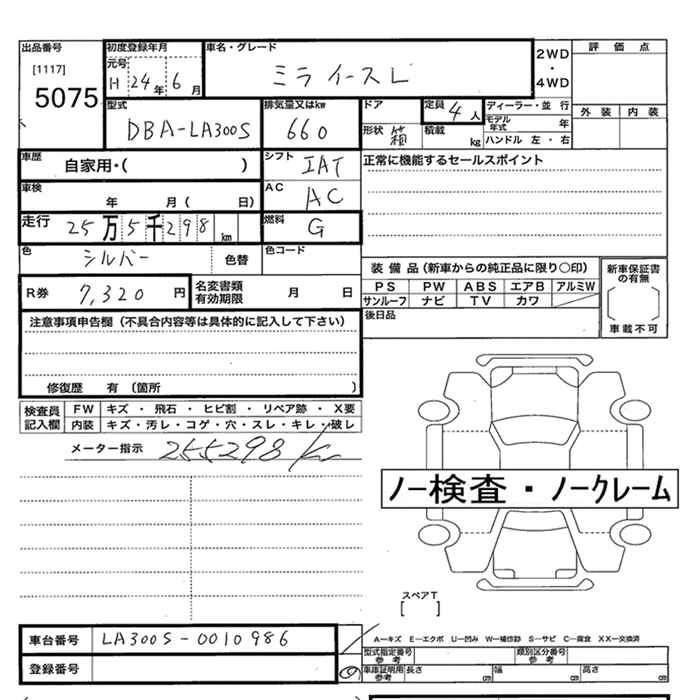 出品番号 [1117] 5075
初度登録年月 元号 H 24年 6月
車名・グレード ミライースL
2WD・4WD
評価点
外装 内装
型式 DBA-LA300S
排気量又はkw 660
ドア 形状 箱
定員 4人
積載 kg
ディーラー・並行
モデル年式 年
ハンドル 左・右
車歴 自家用・( )
シフト IAT
正常に機能するセールスポイント
車検 年 月( 日)
AC AC
走行 25万5千298km
燃料 G
色 シルバー 色替
色コード
装備品(新車からの純正品に限り○印)
PS PW ABS エアB アルミW
サンルーフ ナビ TV カワ
新車保証書の有無
車載不可
R券 7,320円
名変書類有効期限 月 日
後日品
注意事項申告欄(不具合内容等は具体的に記入して下さい)
修復歴 有 (箇所 )
検査員記入欄
FW キズ・飛石・ヒビ割・リペア跡・X要
内装 キズ・汚レ・コゲ・穴・スレ・キレ・破レ
メーター指示 255298km
ノー検査・ノークレーム
スペアT
[ ]
車台番号 LA300S-0010986
登録番号
A－キズ E－エクボ U－凹み W－補修跡 S－サビ C－腐食 XX－交換済
型式指定番号 参考
類別区分番号 参考
車庫証明用 参考 長さ cm 幅 cm 高さ cm